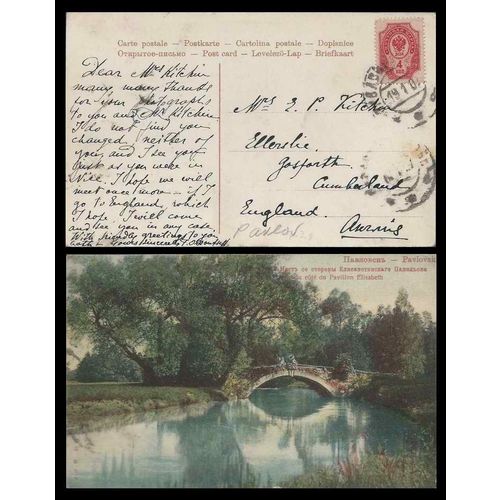 Carte postale — Postkarte — Cartolina postale — Dopisnice
Открытое письмо — Post card — Levelező-Lap — Briefkaart
4
КОП
Dear Mrs Kitchin
many many Thanks
for your photographs
To you and Mr Kitchin
I do not find you
changed, neither of
you, and I see you
just as you were in
Nice. I hope we will
meet once more — if I
go to England, which
I hope I will come
and see you in any case.
With friendly greetings to you
both — Yours sincerely
Mrs E. P. Kitchin
Ellerslie
Gosforth
Cumberland
England
Англія
Павловскъ — Pavlovsk
Мостъ со стороны Елисаветинскаго Павильона
côté du Pavillon Elisabeth